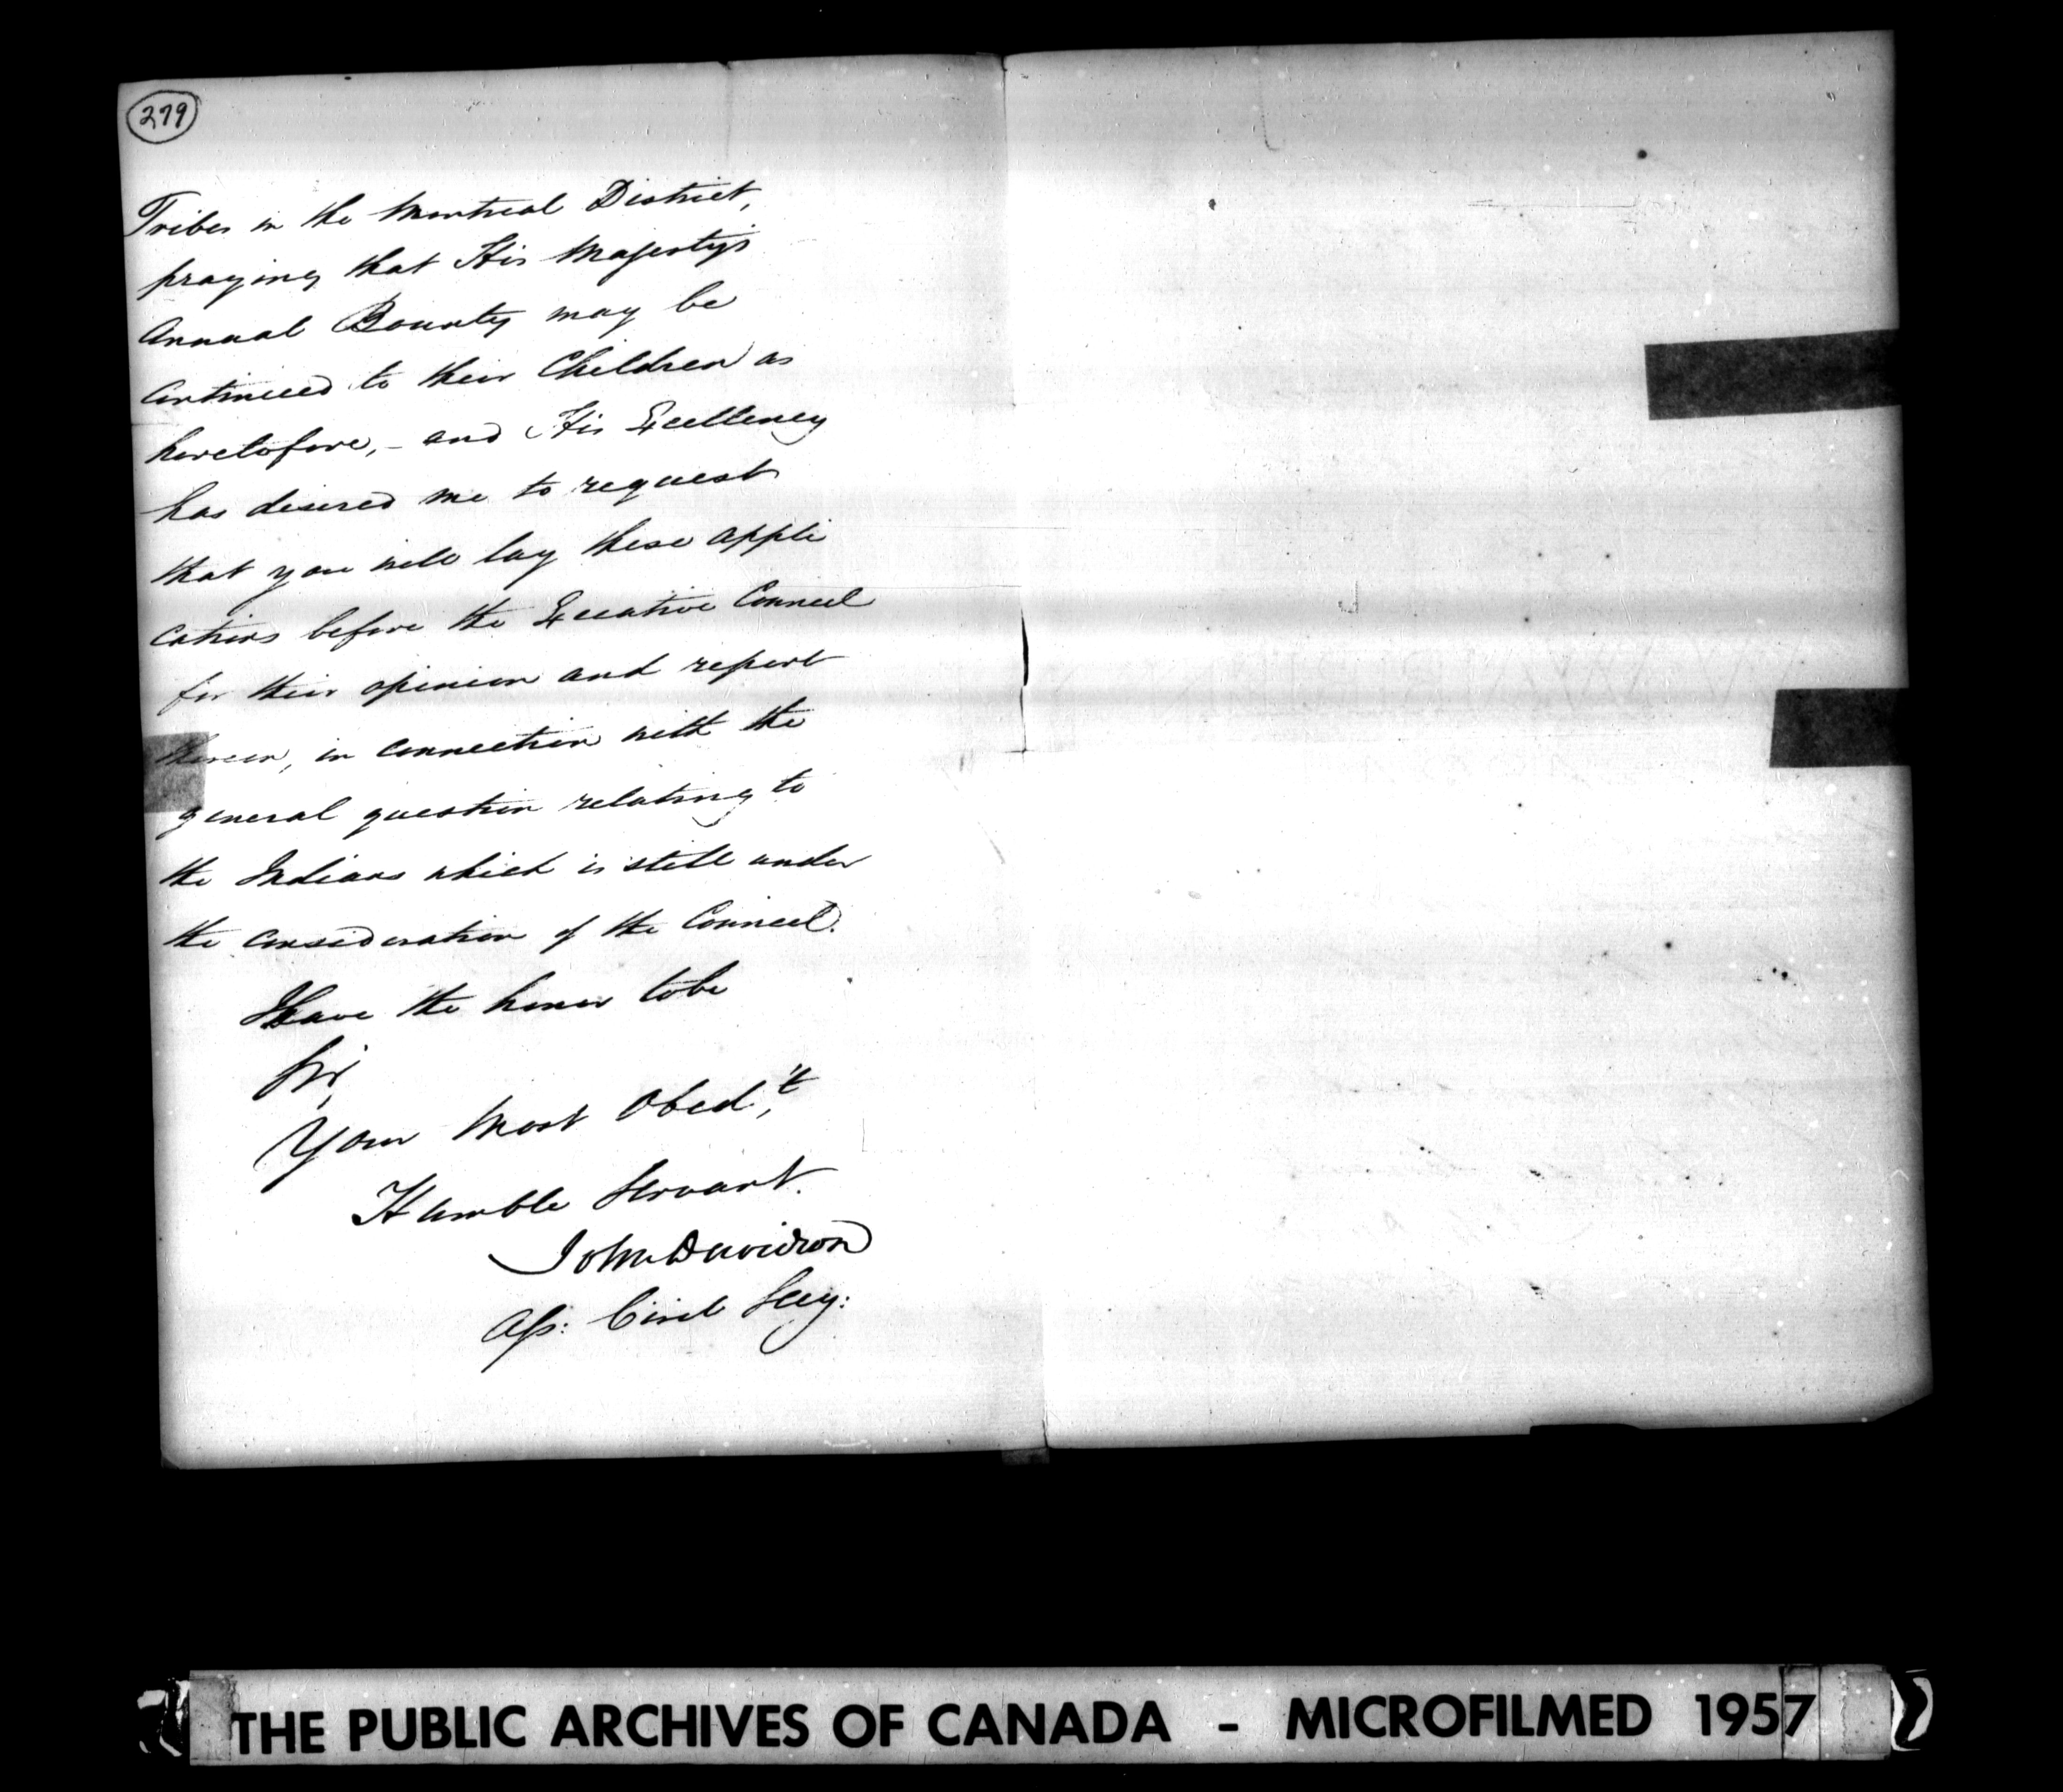 279
Tribes in the Montreal District,
praying that His Majesty's
Annual Bounty may be
continued to their Children as
heretofore, – and His Excellency
has desired me to request
that you will lay these appli
cations before the Executive Council
for their opinion and report
thereon, in connection with the
general question relating to
the Indians which is still under
the consideration of the Council.
I have the honor to be
Sir,
Your Most Obed't,
Humble Servant.
John Davidson
Ass: Civil Secy:
THE PUBLIC ARCHIVES OF CANADA - MICROFILMED 1957